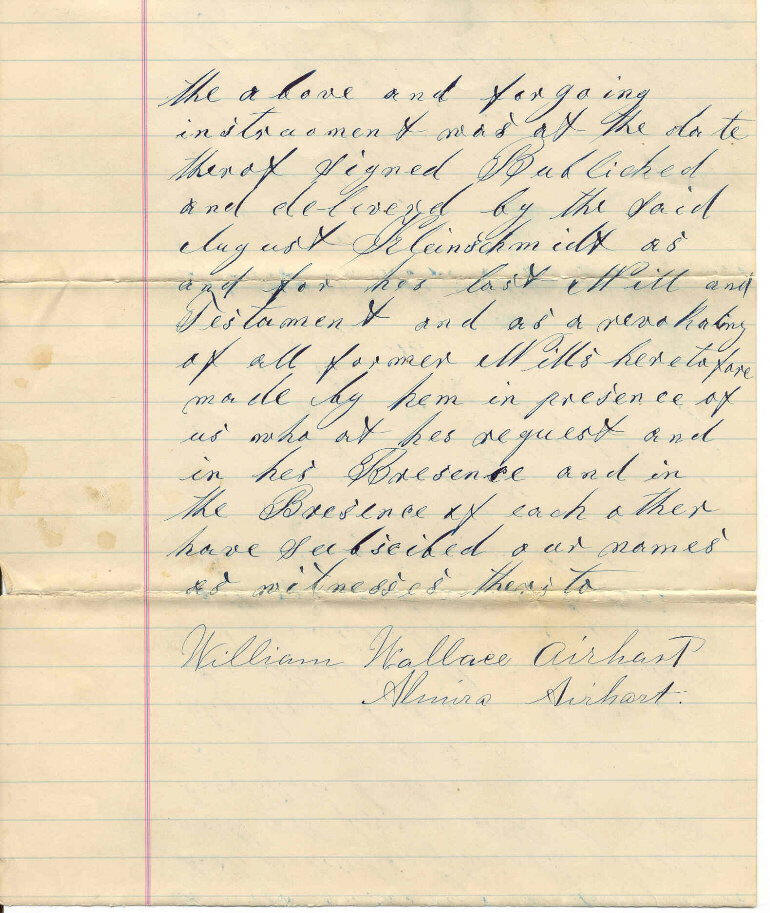 the above and forgoing
instruoment was at the date
therof signed Publiched
and deliverd by the said
August Kleinschmidt as
and for hes last Will and
Testament and as a revokating
of all former Wills heretofore
made by hem in presence of
us who at hes request and
in hes Presence and in
the Presence of each other
have subscibed our names
as witnesses therito
William Wallace Airhart
Almira Airhart.